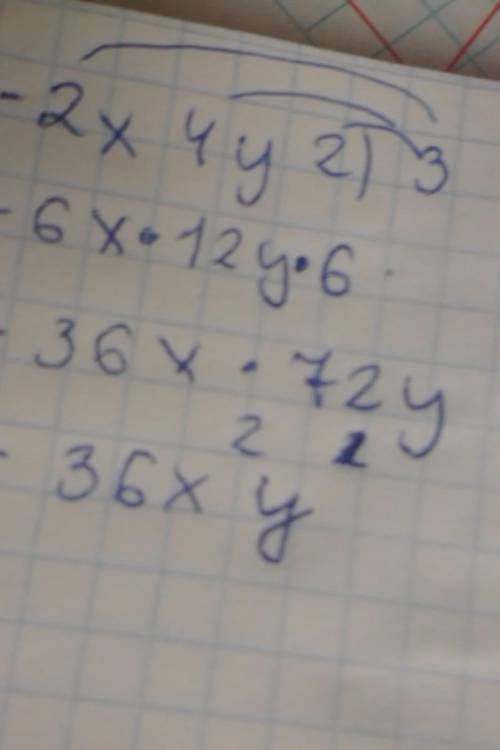 - 2x 4y 2) 3
- 6x · 12y · 6
- 36x · 72y
2 2
- 36x y